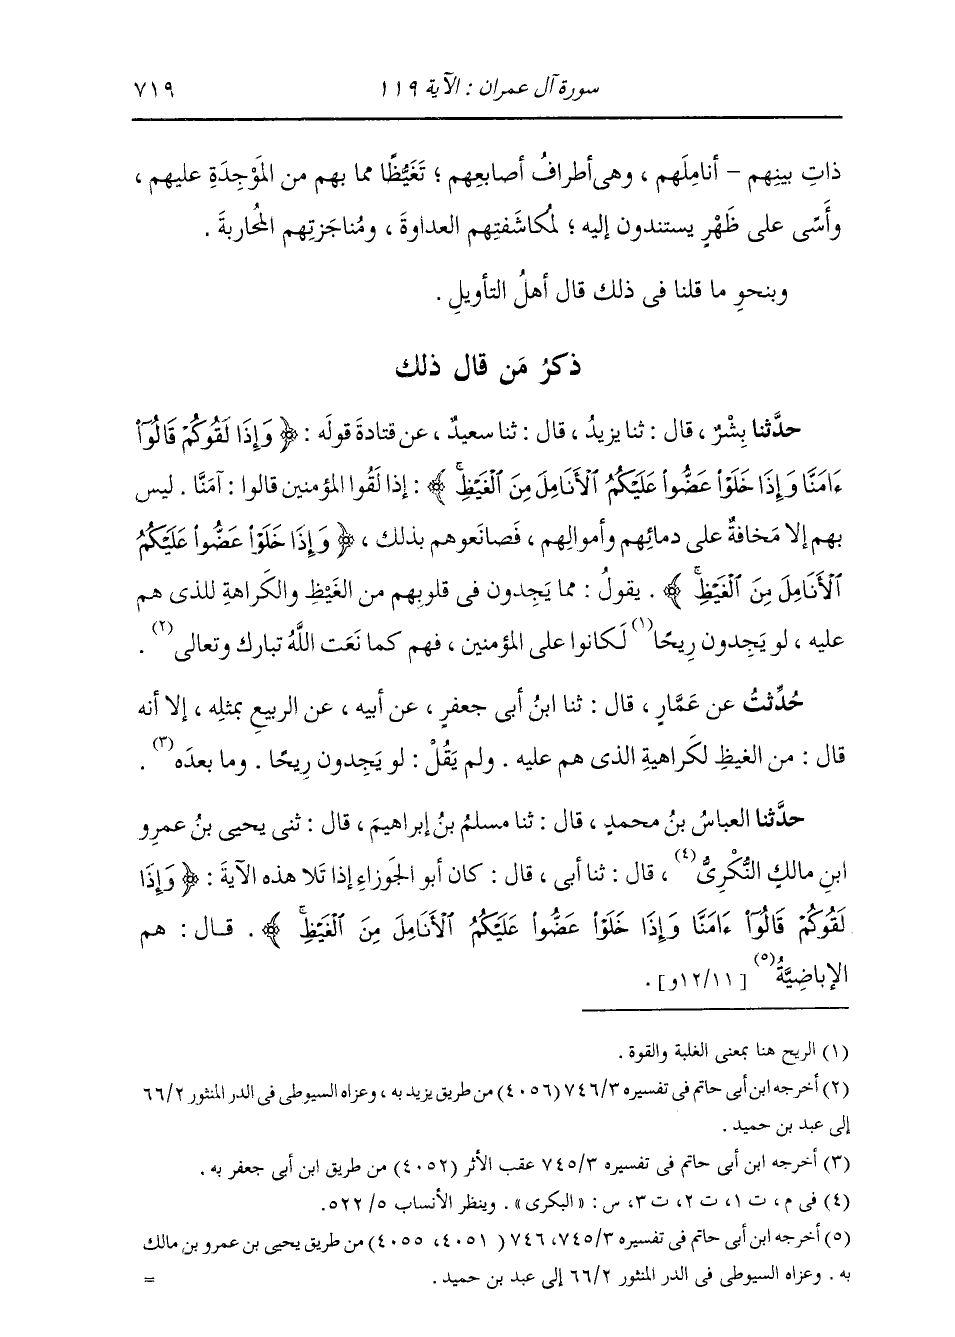 سورة آل عمران : الآية ١١٩ ٧١٩
ذاتِ بينِهم – أنامِلَهم ، وهى أطرافُ أصابعِهم ؛ تَغَيُّظًا مما بهم من المَوْجِدَةِ عليهم ،
وأَسًى على ظَهْرٍ يستندون إليه ؛ لمُكاشَفتِهم العداوةَ ، ومُناجَزتِهم المُحاربةَ .
وبنحوِ ما قلنا فى ذلك قال أهلُ التأويلِ .
ذكرُ مَن قال ذلك
حدَّثنا بِشْرٌ ، قال : ثنا يزيدُ ، قال : ثنا سعيدٌ ، عن قتادةَ قولَه : ﴿ وَإِذَا لَقُوكُمْ قَالُوٓا۟
ءَامَنَّا وَإِذَا خَلَوْا۟ عَضُّوا۟ عَلَيْكُمُ ٱلْأَنَامِلَ مِنَ ٱلْغَيْظِ ۚ ﴾ : إذا لَقُوا المؤمنين قالوا : آمَنَّا . ليس
بهم إلا مَخافةٌ على دمائِهم وأموالِهم ، فَصانَعوهم بذلك ، ﴿ وَإِذَا خَلَوْا۟ عَضُّوا۟ عَلَيْكُمُ
ٱلْأَنَامِلَ مِنَ ٱلْغَيْظِ ۚ ﴾ . يقولُ : مما يَجِدون فى قلوبِهم من الغَيْظِ والكَراهةِ للذى هم
عليه ، لو يَجِدون رِيحًا(١) لَكانوا على المؤمنين ، فهم كما نَعَت اللَّهُ تبارك وتعالى(٢) .
حُدِّثتُ عن عَمَّارٍ ، قال : ثنا ابنُ أبى جعفرٍ ، عن أبيه ، عن الربيعِ بمثلِه ، إلا أنه
قال : من الغيظِ لكَراهيةِ الذى هم عليه . ولم يَقُلْ : لو يَجِدون رِيحًا . وما بعدَه(٣) .
حدَّثنا العباسُ بنُ محمدٍ ، قال : ثنا مسلمُ بنُ إبراهيمَ ، قال : ثنى يحيى بنُ عمرِو
ابنِ مالكٍ النُّكْرِىُّ(٤) ، قال : ثنا أبى ، قال : كان أبو الجَوزاءِ إذا تَلا هذه الآيةَ : ﴿ وَإِذَا
لَقُوكُمْ قَالُوٓا۟ ءَامَنَّا وَإِذَا خَلَوْا۟ عَضُّوا۟ عَلَيْكُمُ ٱلْأَنَامِلَ مِنَ ٱلْغَيْظِ ۚ ﴾ . قال : هم
الإباضِيَّةُ(٥) [١٢/١١و] .
(١) الريح هنا بمعنى الغلبة والقوة .
(٢) أخرجه ابن أبى حاتم فى تفسيره ٧٤٦/٣ (٤٠٥٦) من طريق يزيد به ، وعزاه السيوطى فى الدر المنثور ٦٦/٢
إلى عبد بن حميد .
(٣) أخرجه ابن أبى حاتم فى تفسيره ٧٤٥/٣ عقب الأثر (٤٠٥٢) من طريق ابن أبى جعفر به .
(٤) فى م ، ت ١، ت ٢، ت ٣، س : « البكرى» . وينظر الأنساب ٥/ ٥٢٢.
(٥) أخرجه ابن أبى حاتم فى تفسيره ٧٤٥/٣، ٧٤٦ ( ٤٠٥١، ٤٠٥٥) من طريق يحيى بن عمرو بن مالك
به . وعزاه السيوطى فى الدر المنثور ٦٦/٢ إلى عبد بن حميد . =